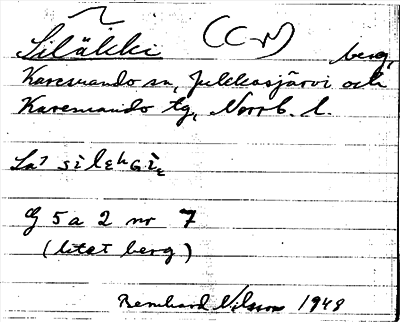 Siläkki (CW) berg,
Karesuando sn, Jukkasjärvi och
Karesuando tg, Norrb. l.
La⁷
G 5 a 2 nr 7
(litet berg)
Bernhard Nilsson 1948